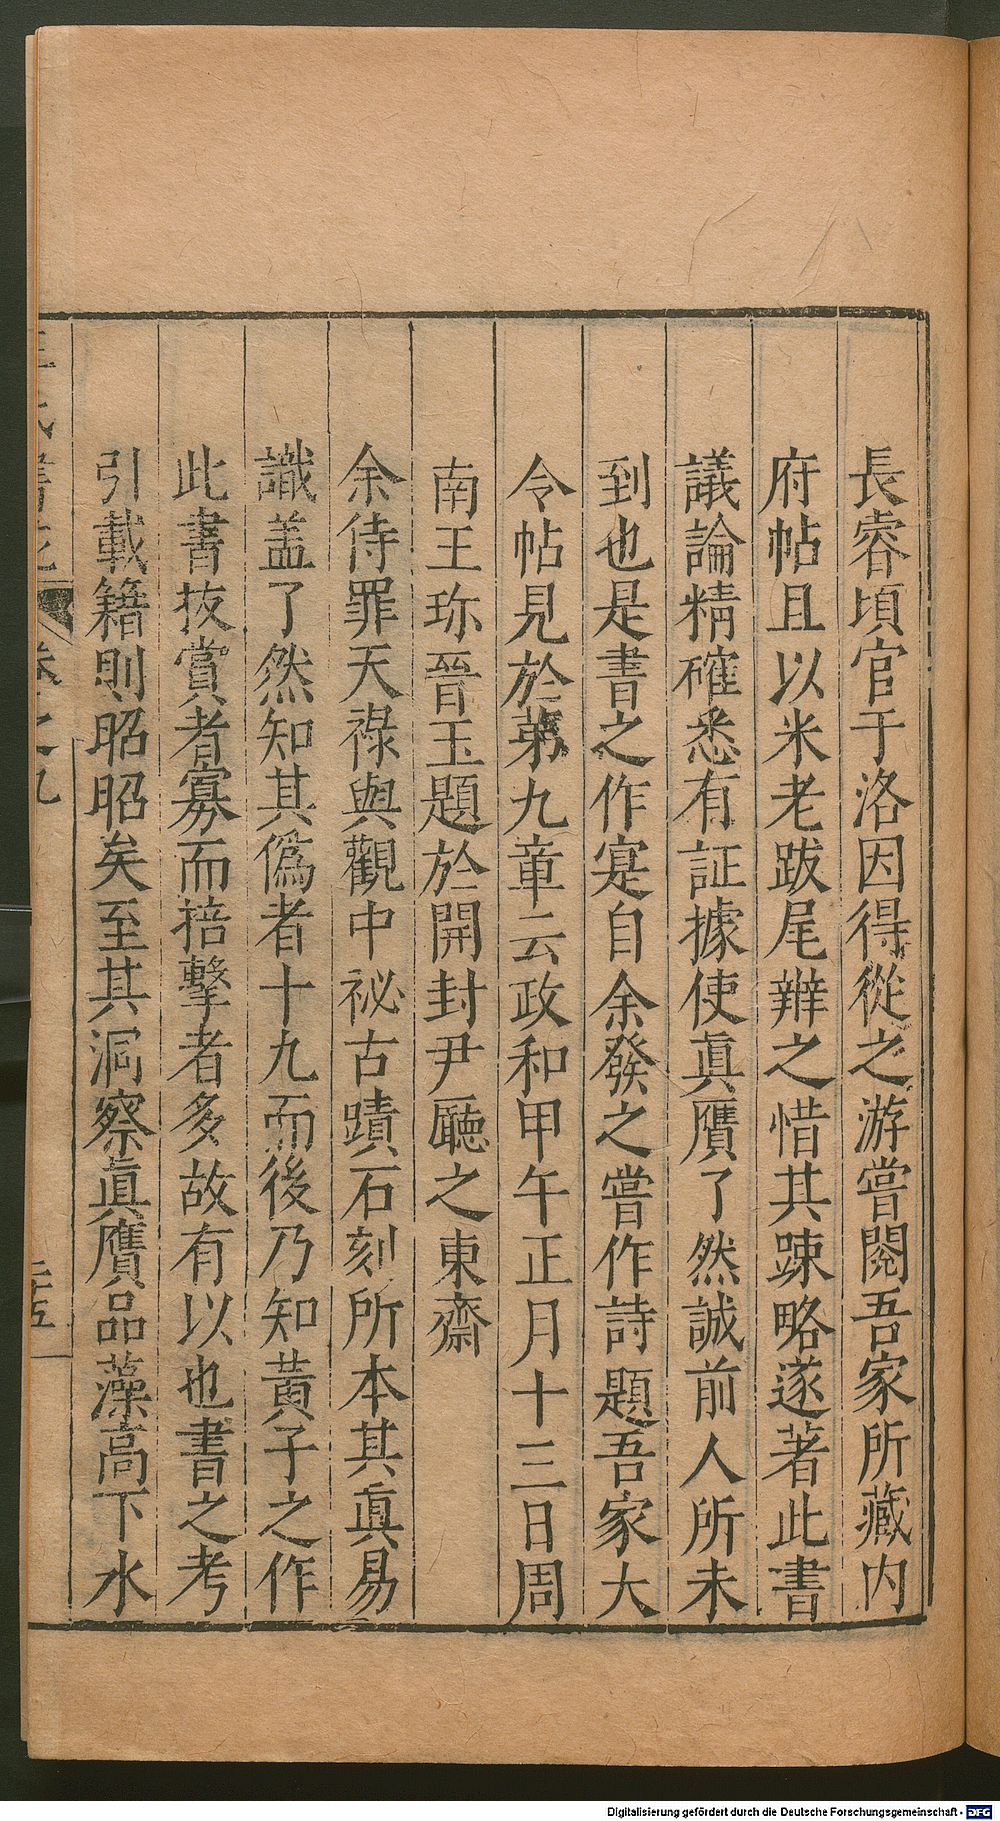 長睿頃官于洛因得從之游嘗閱吾家所藏内
府帖且以米老跋尾辨之惜其踈略遂著此書
議論精確悉有証據使眞贋了然誠前人所未
到也是書之作寔自余發之嘗作詩題吾家大
令帖見於第九章云政和甲午正月十三日周
南王珎晉玉題於開封尹廳之東齋
余侍罪天祿與觀中祕古蹟石刻所本其眞易
識盖了然知其僞者十九而後乃知黄子之作
此書抜賞者寡而掊擊者多故有以也書之考
引載籍則昭昭矣至其洞察眞贋品藻高下水
卷之九
二十五
Digitalisierung gefördert durch die Deutsche Forschungsgemeinschaft - DFG